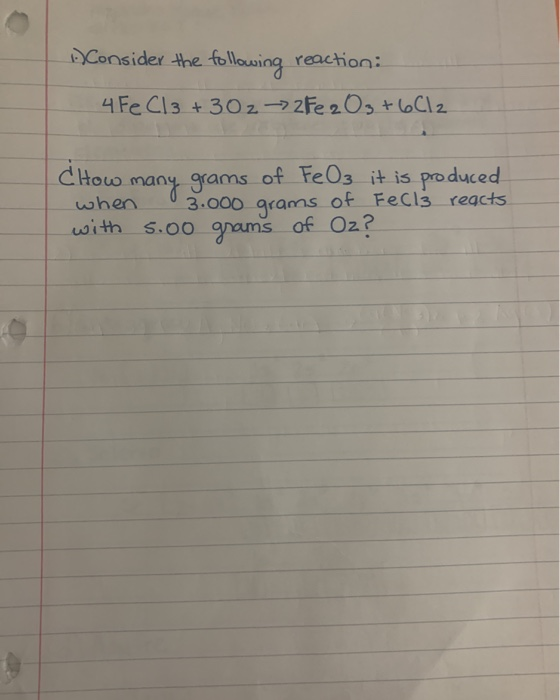 1.) Consider the following reaction:
4FeCl3 + 3O2 → 2Fe2O3 + 6Cl2
¿How many grams of FeO3 it is produced
when 3.000 grams of FeCl3 reacts
with 5.00 grams of O2?